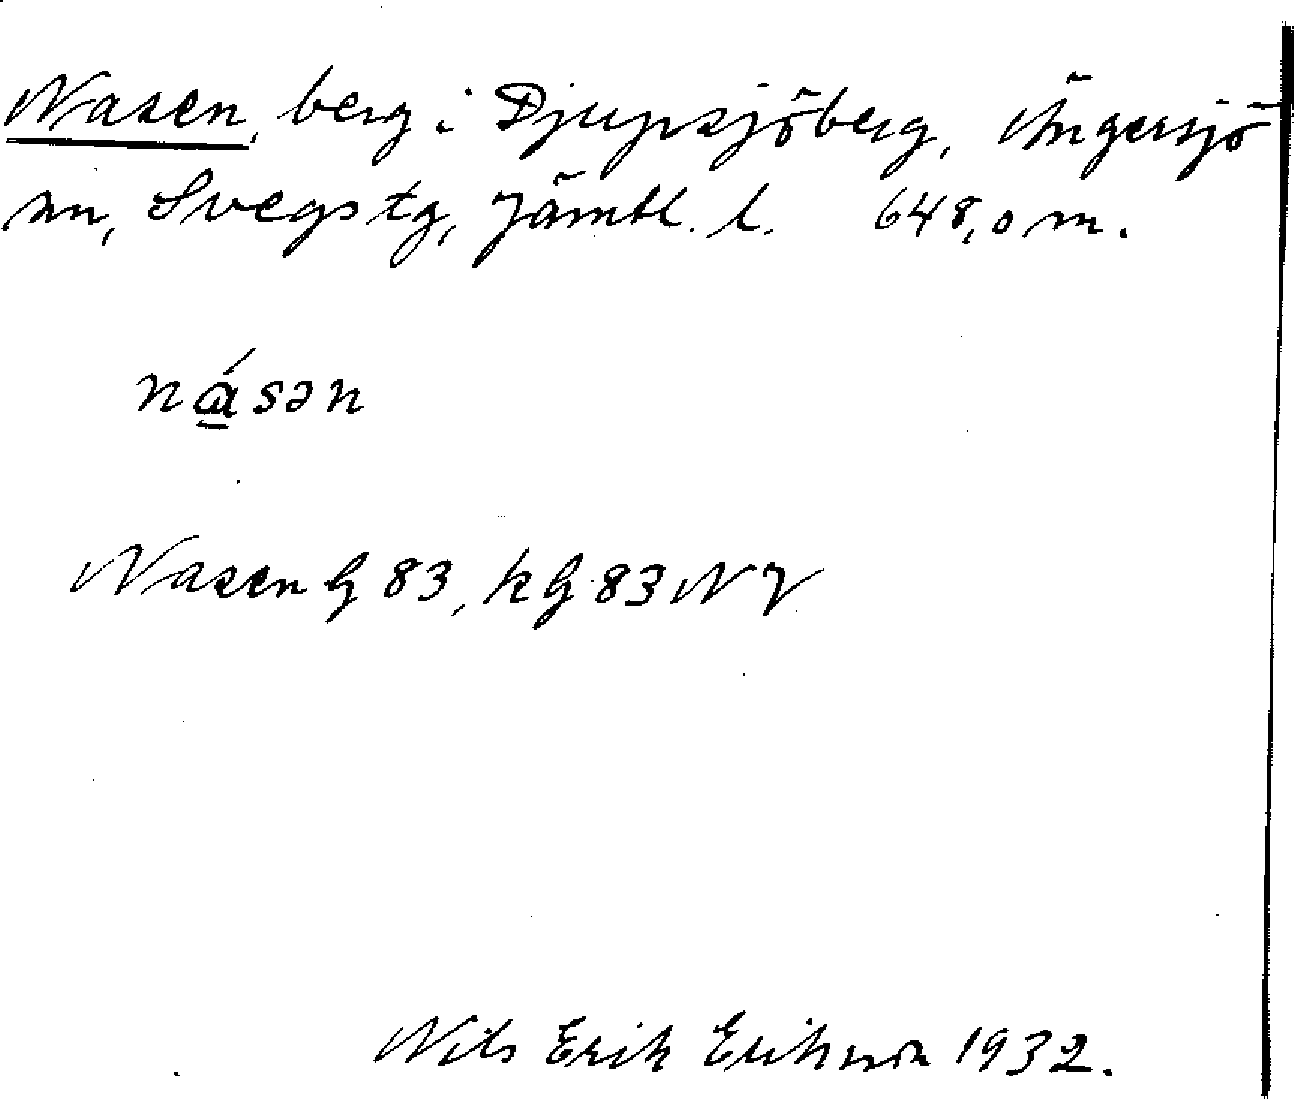 Nasen, berg i Djupsjöberg, Ängersjö
sn, Svegs tg, Jämtl. l. 648,0 m.
nása̲n
Nasen G 83, k G 83 NV
Nils Erik Erikson 1932.